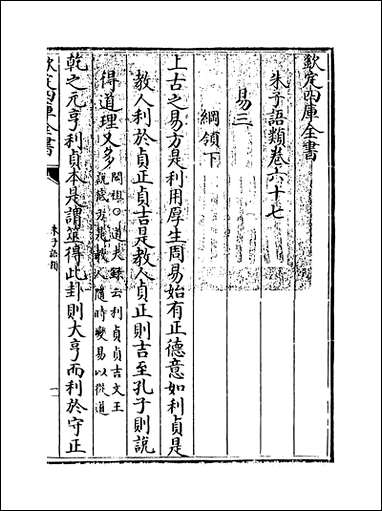 欽定四庫全書
朱子語類卷六十七
易三
綱領下
上古之易方是利用厚生周易始有正德意如利貞是
教人利於貞正貞吉是教人貞正則吉至孔子則說
得道理又多
閎祖○道夫録云利貞貞吉文王
說底方是教人隨時變易以從道
乾之元亨利貞本是謂筮得此卦則大亨而利於守正
欽定四庫全書
朱子語類
一